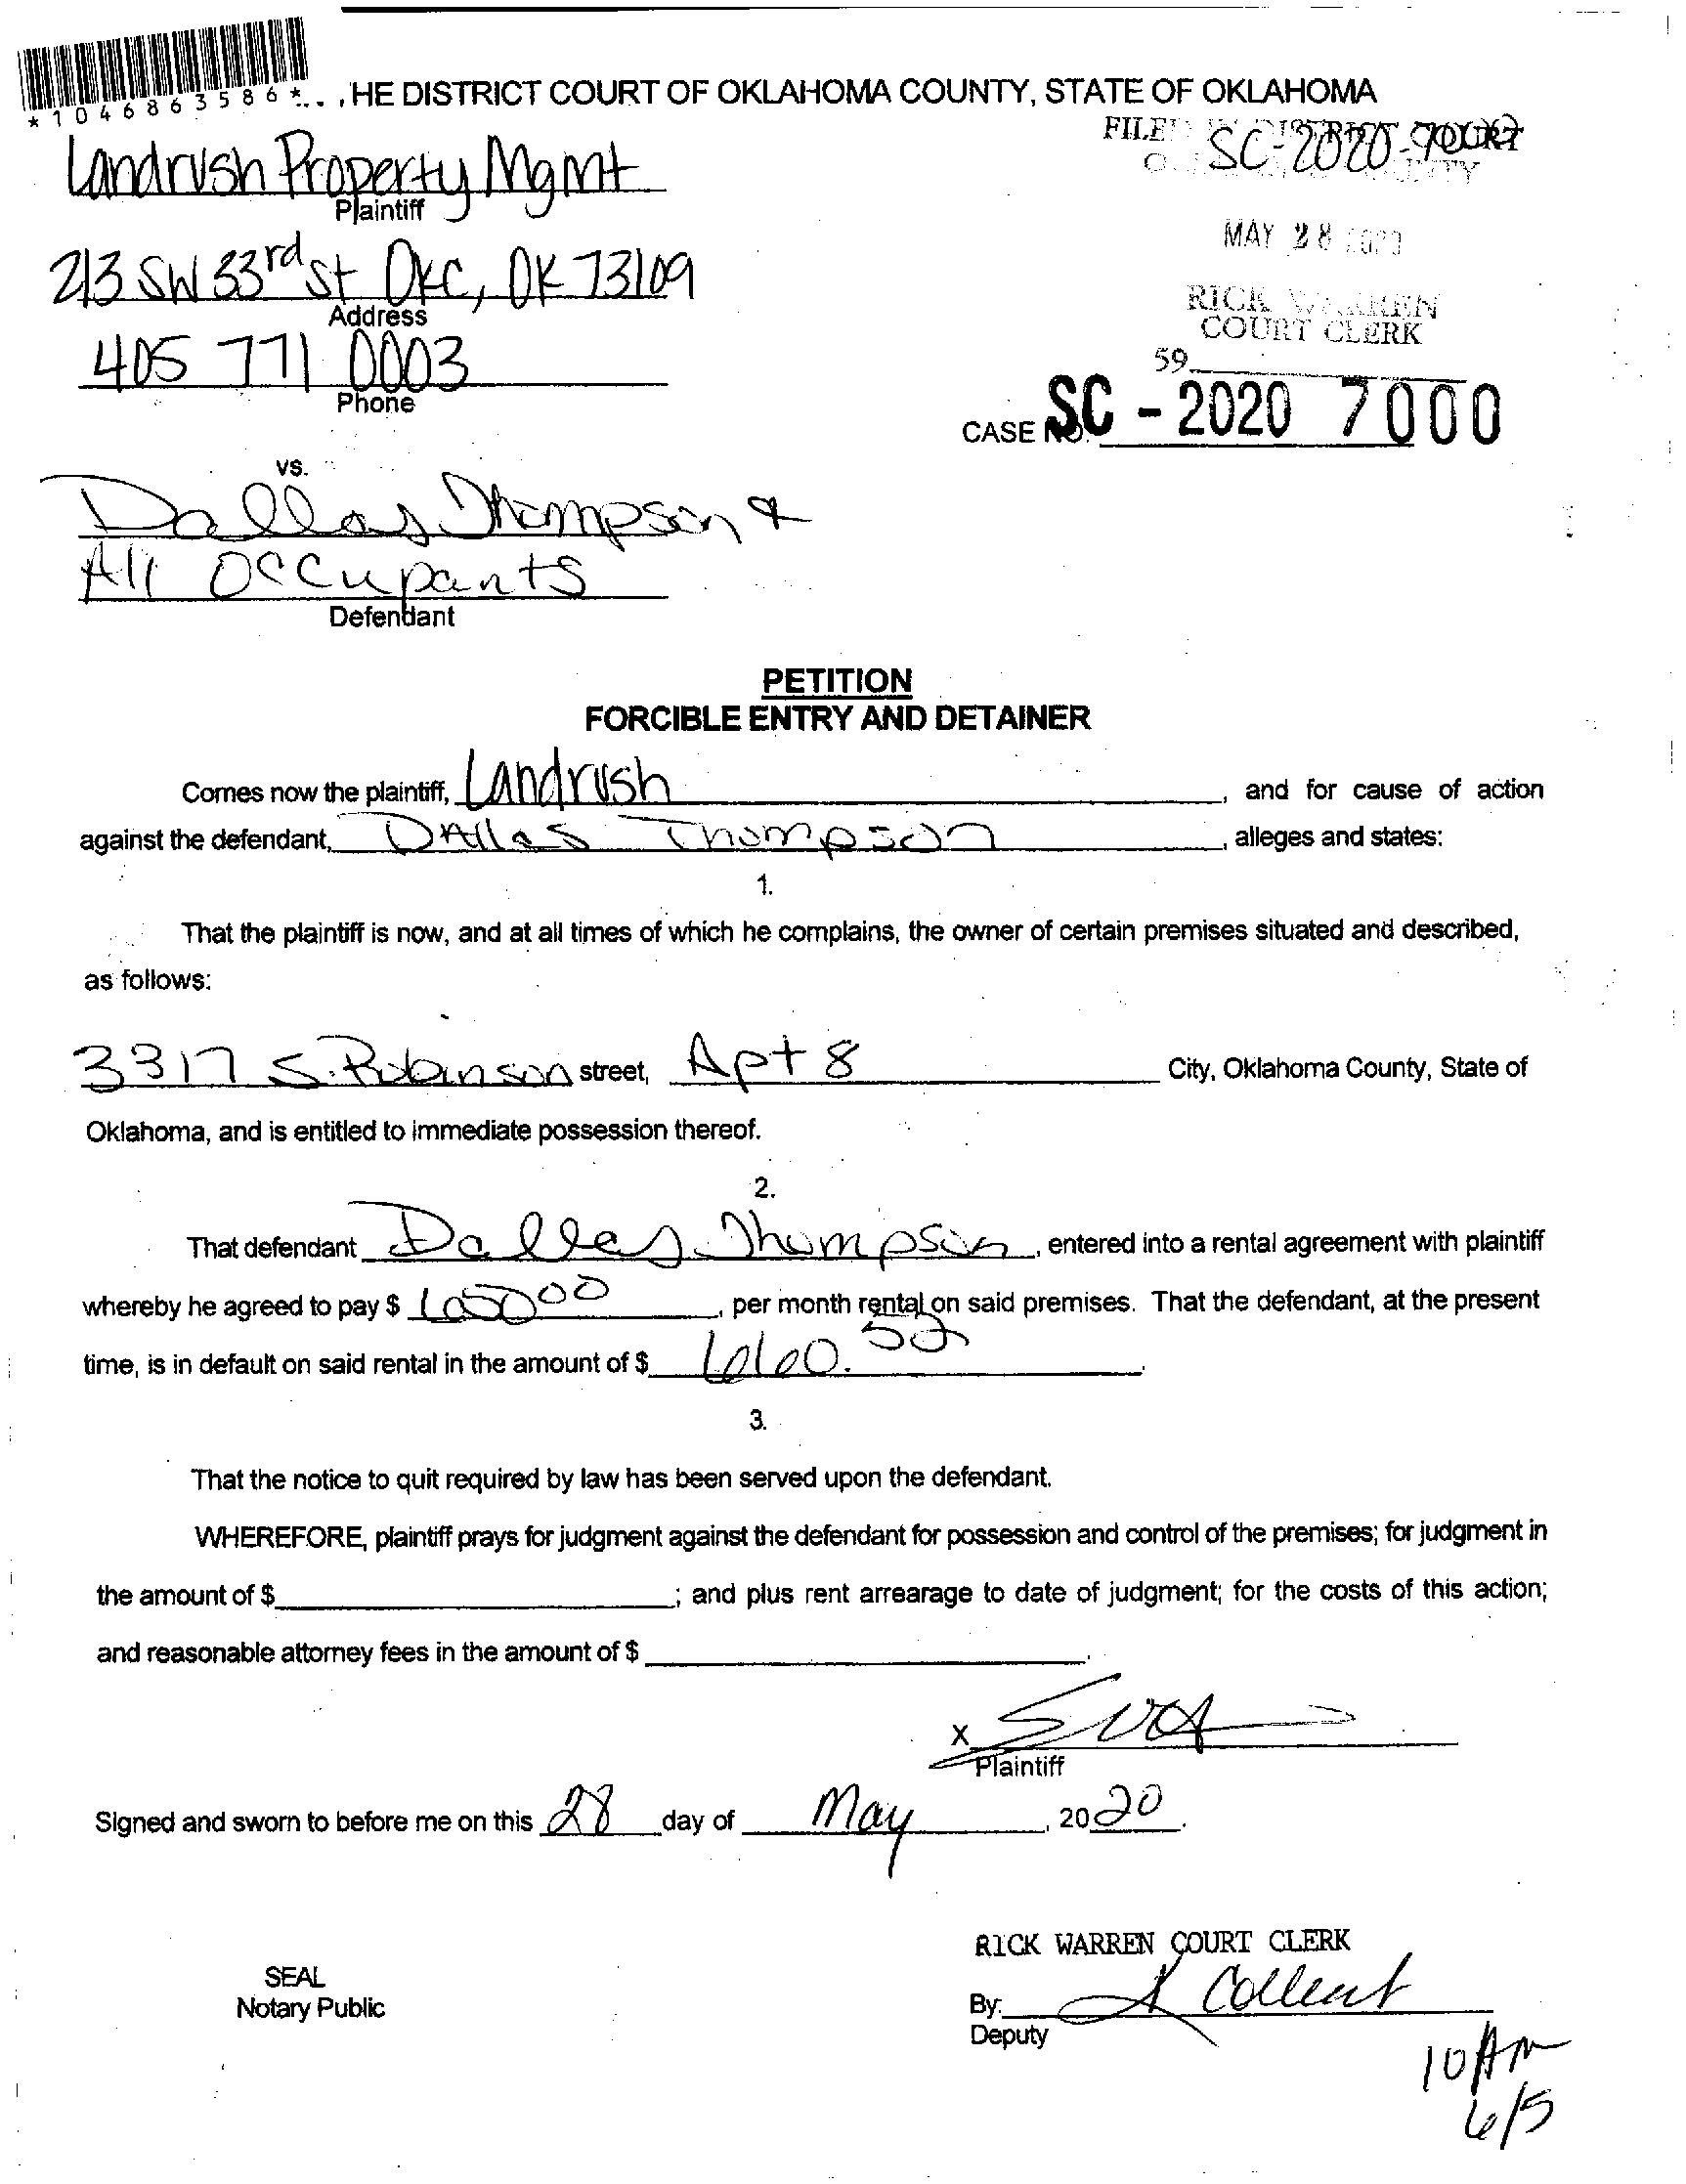 *1046863586*
HE DISTRICT COURT OF OKLAHOMA COUNTY, STATE OF OKLAHOMA
Landrush Property Mgmt
Plaintiff
213 SW 33rd St OKC, OK 73109
Address
405 771 0003
Phone
FILED IN DISTRICT COURT
SC-2020-7000
MAY 28 2020
RICK WARREN
COURT CLERK
59
CASE NO. SC - 2020 7000
vs.
Dallas Thompson &
All Occupants
Defendant
PETITION
FORCIBLE ENTRY AND DETAINER
Comes now the plaintiff, Landrush, and for cause of action
against the defendant, Dallas Thompson, alleges and states:
1.
That the plaintiff is now, and at all times of which he complains, the owner of certain premises situated and described,
as follows:
3317 S. Robinson street, Apt 8 City, Oklahoma County, State of
Oklahoma, and is entitled to immediate possession thereof.
2.
That defendant Dallas Thompson, entered into a rental agreement with plaintiff
whereby he agreed to pay $ 650 00, per month rental on said premises. That the defendant, at the present
time, is in default on said rental in the amount of $ 660.52.
3.
That the notice to quit required by law has been served upon the defendant.
WHEREFORE, plaintiff prays for judgment against the defendant for possession and control of the premises; for judgment in
the amount of $ ; and plus rent arrearage to date of judgment; for the costs of this action;
and reasonable attorney fees in the amount of $ .
X
Plaintiff
Signed and sworn to before me on this 28 day of May, 2020.
RICK WARREN COURT CLERK
SEAL
Notary Public
By:
Deputy
10 AM
6/5